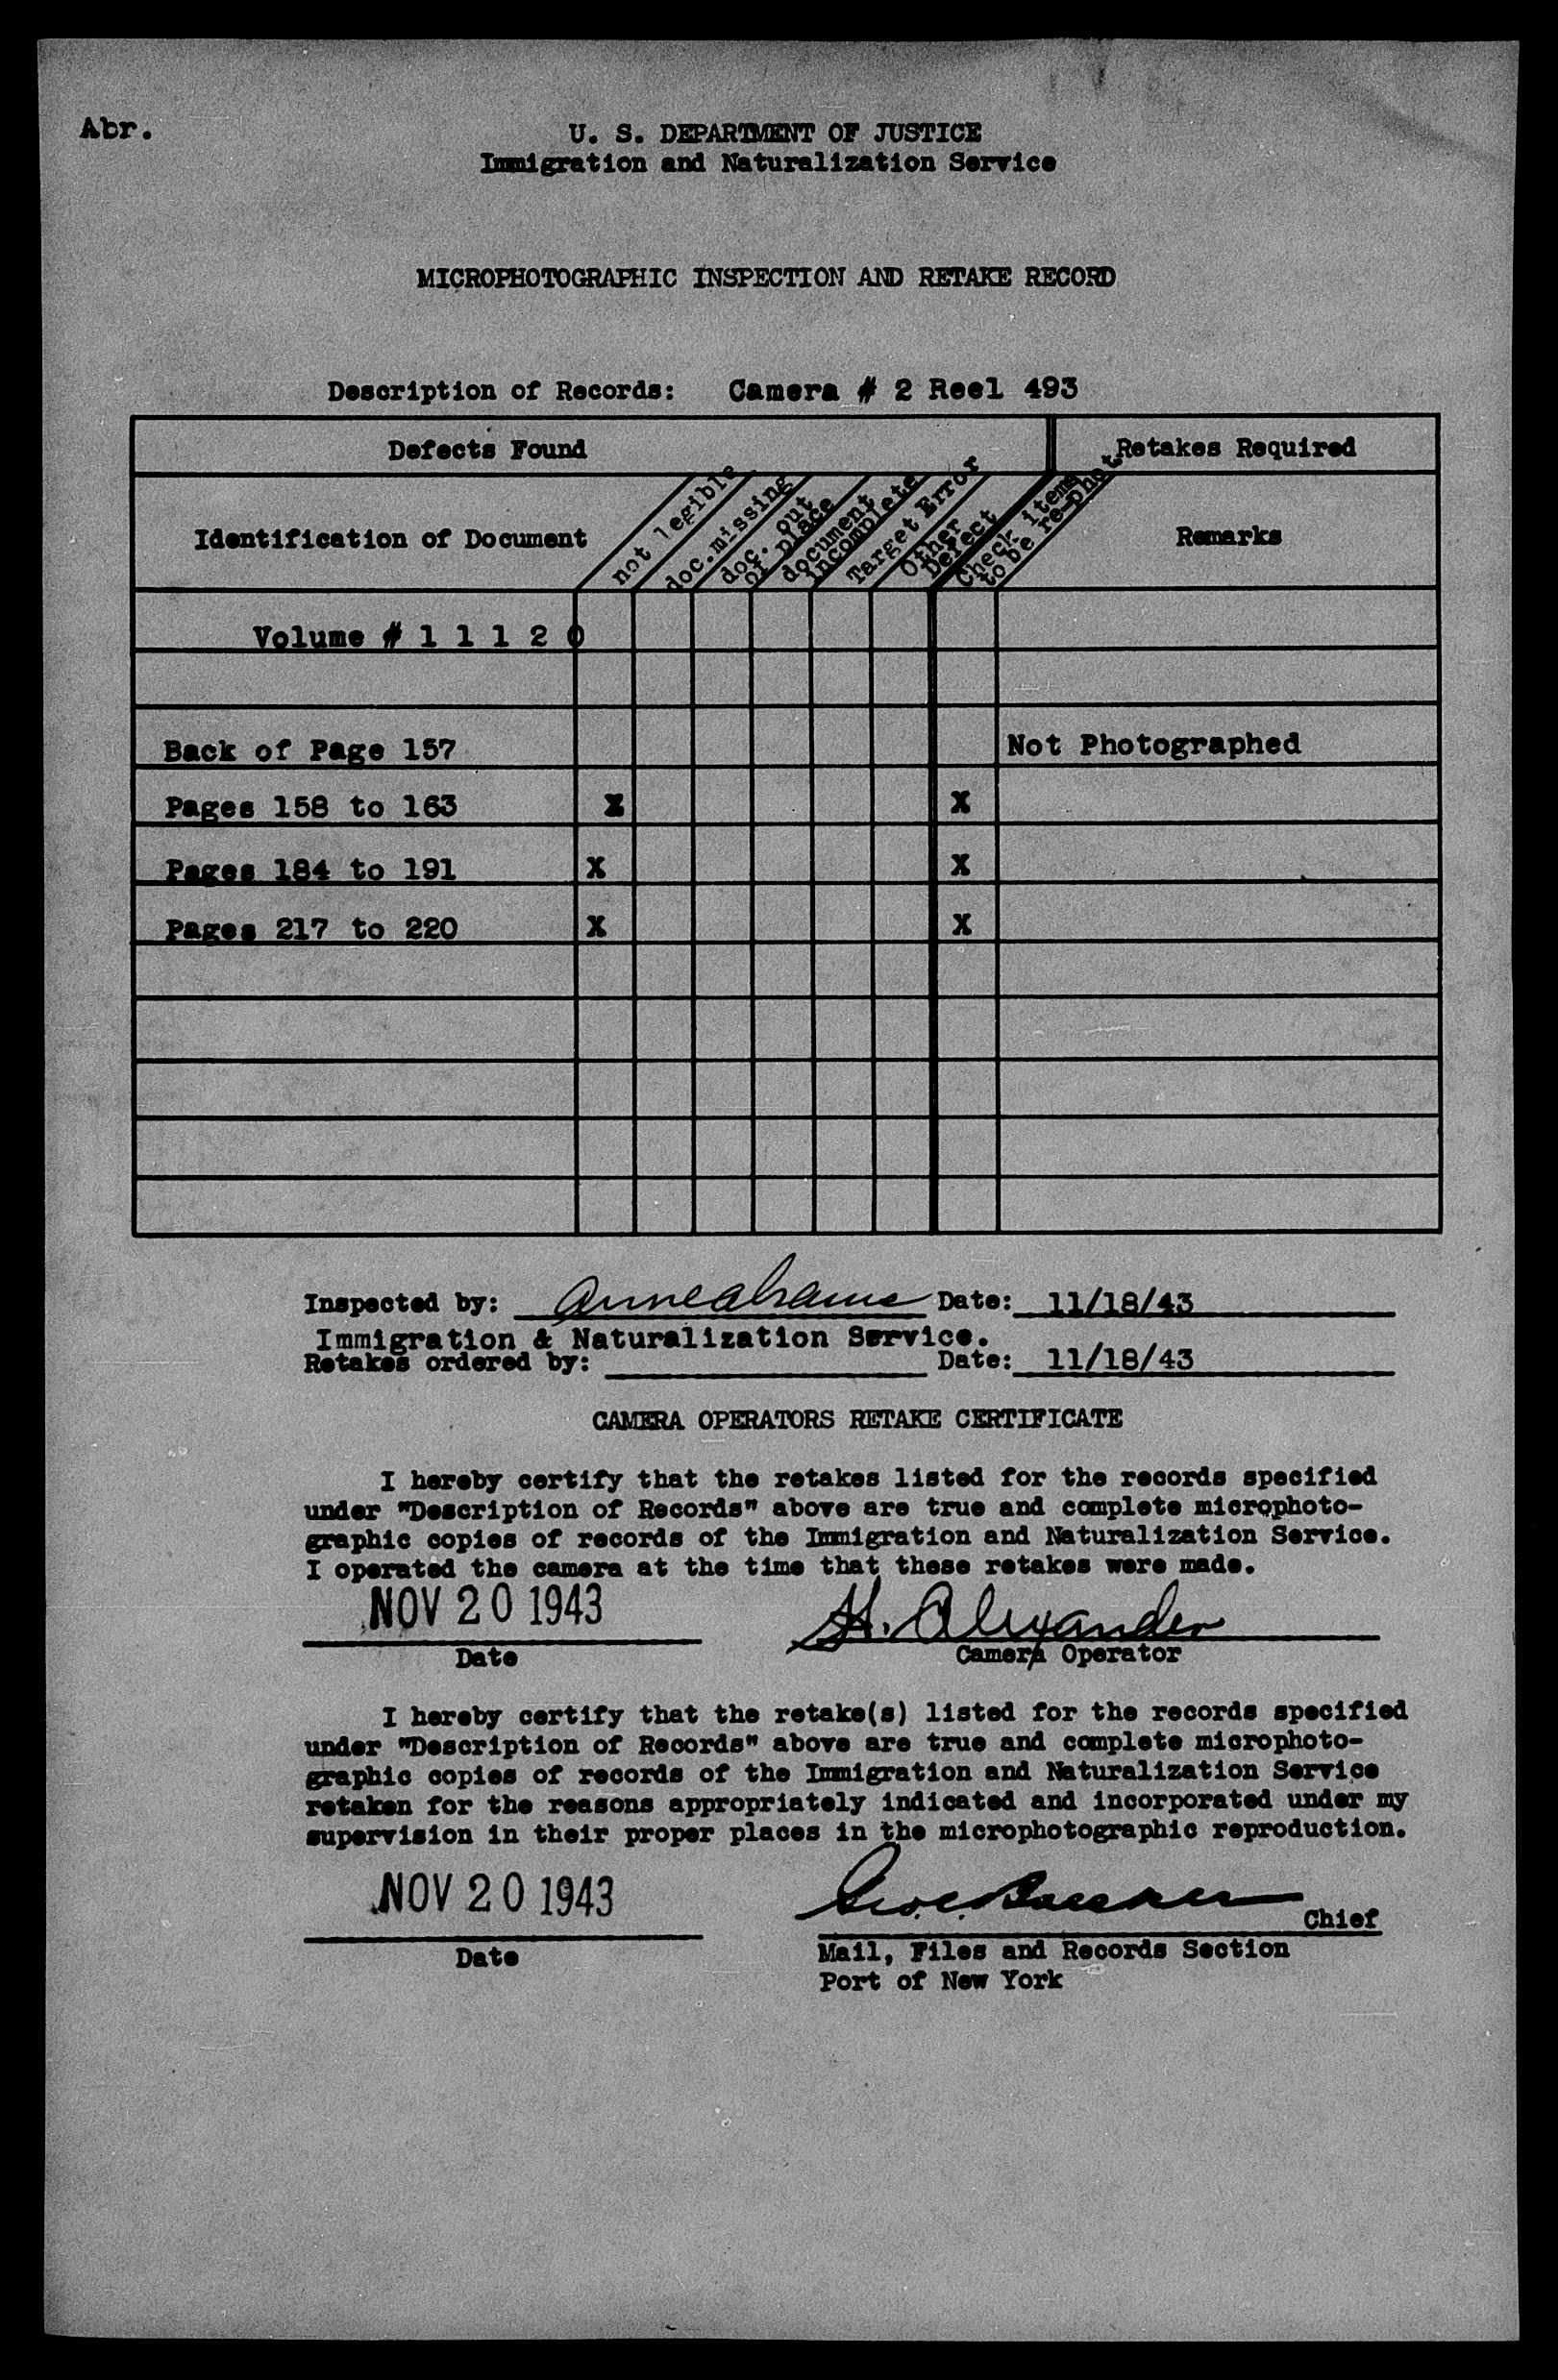 Abr.
U. S. DEPARTMENT OF JUSTICE
Immigration and Naturalization Service
MICROPHOTOGRAPHIC INSPECTION AND RETAKE RECORD
Description of Records: Camera # 2 Reel 493
Defects Found
Retakes Required
Identification of Document
not legible
doc.missing
doc. out
of place
document
incomplete
Target Error
Other
Defect
Check items
to be re-phot
Remarks
Volume # 1 1 1 2 0
Back of Page 157 Not Photographed
Pages 158 to 163 X X
Pages 184 to 191 X X
Pages 217 to 220 X X
Inspected by: Anne Abrams Date: 11/18/43
Immigration & Naturalization Service.
Retakes ordered by: Date: 11/18/43
CAMERA OPERATORS RETAKE CERTIFICATE
I hereby certify that the retakes listed for the records specified
under "Description of Records" above are true and complete microphoto-
graphic copies of records of the Immigration and Naturalization Service.
I operated the camera at the time that these retakes were made.
NOV 20 1943 H. Alexander
Date Camera Operator
I hereby certify that the retake(s) listed for the records specified
under "Description of Records" above are true and complete microphoto-
graphic copies of records of the Immigration and Naturalization Service
retaken for the reasons appropriately indicated and incorporated under my
supervision in their proper places in the microphotographic reproduction.
NOV 20 1943
Chief
Date
Mail, Files and Records Section
Port of New York